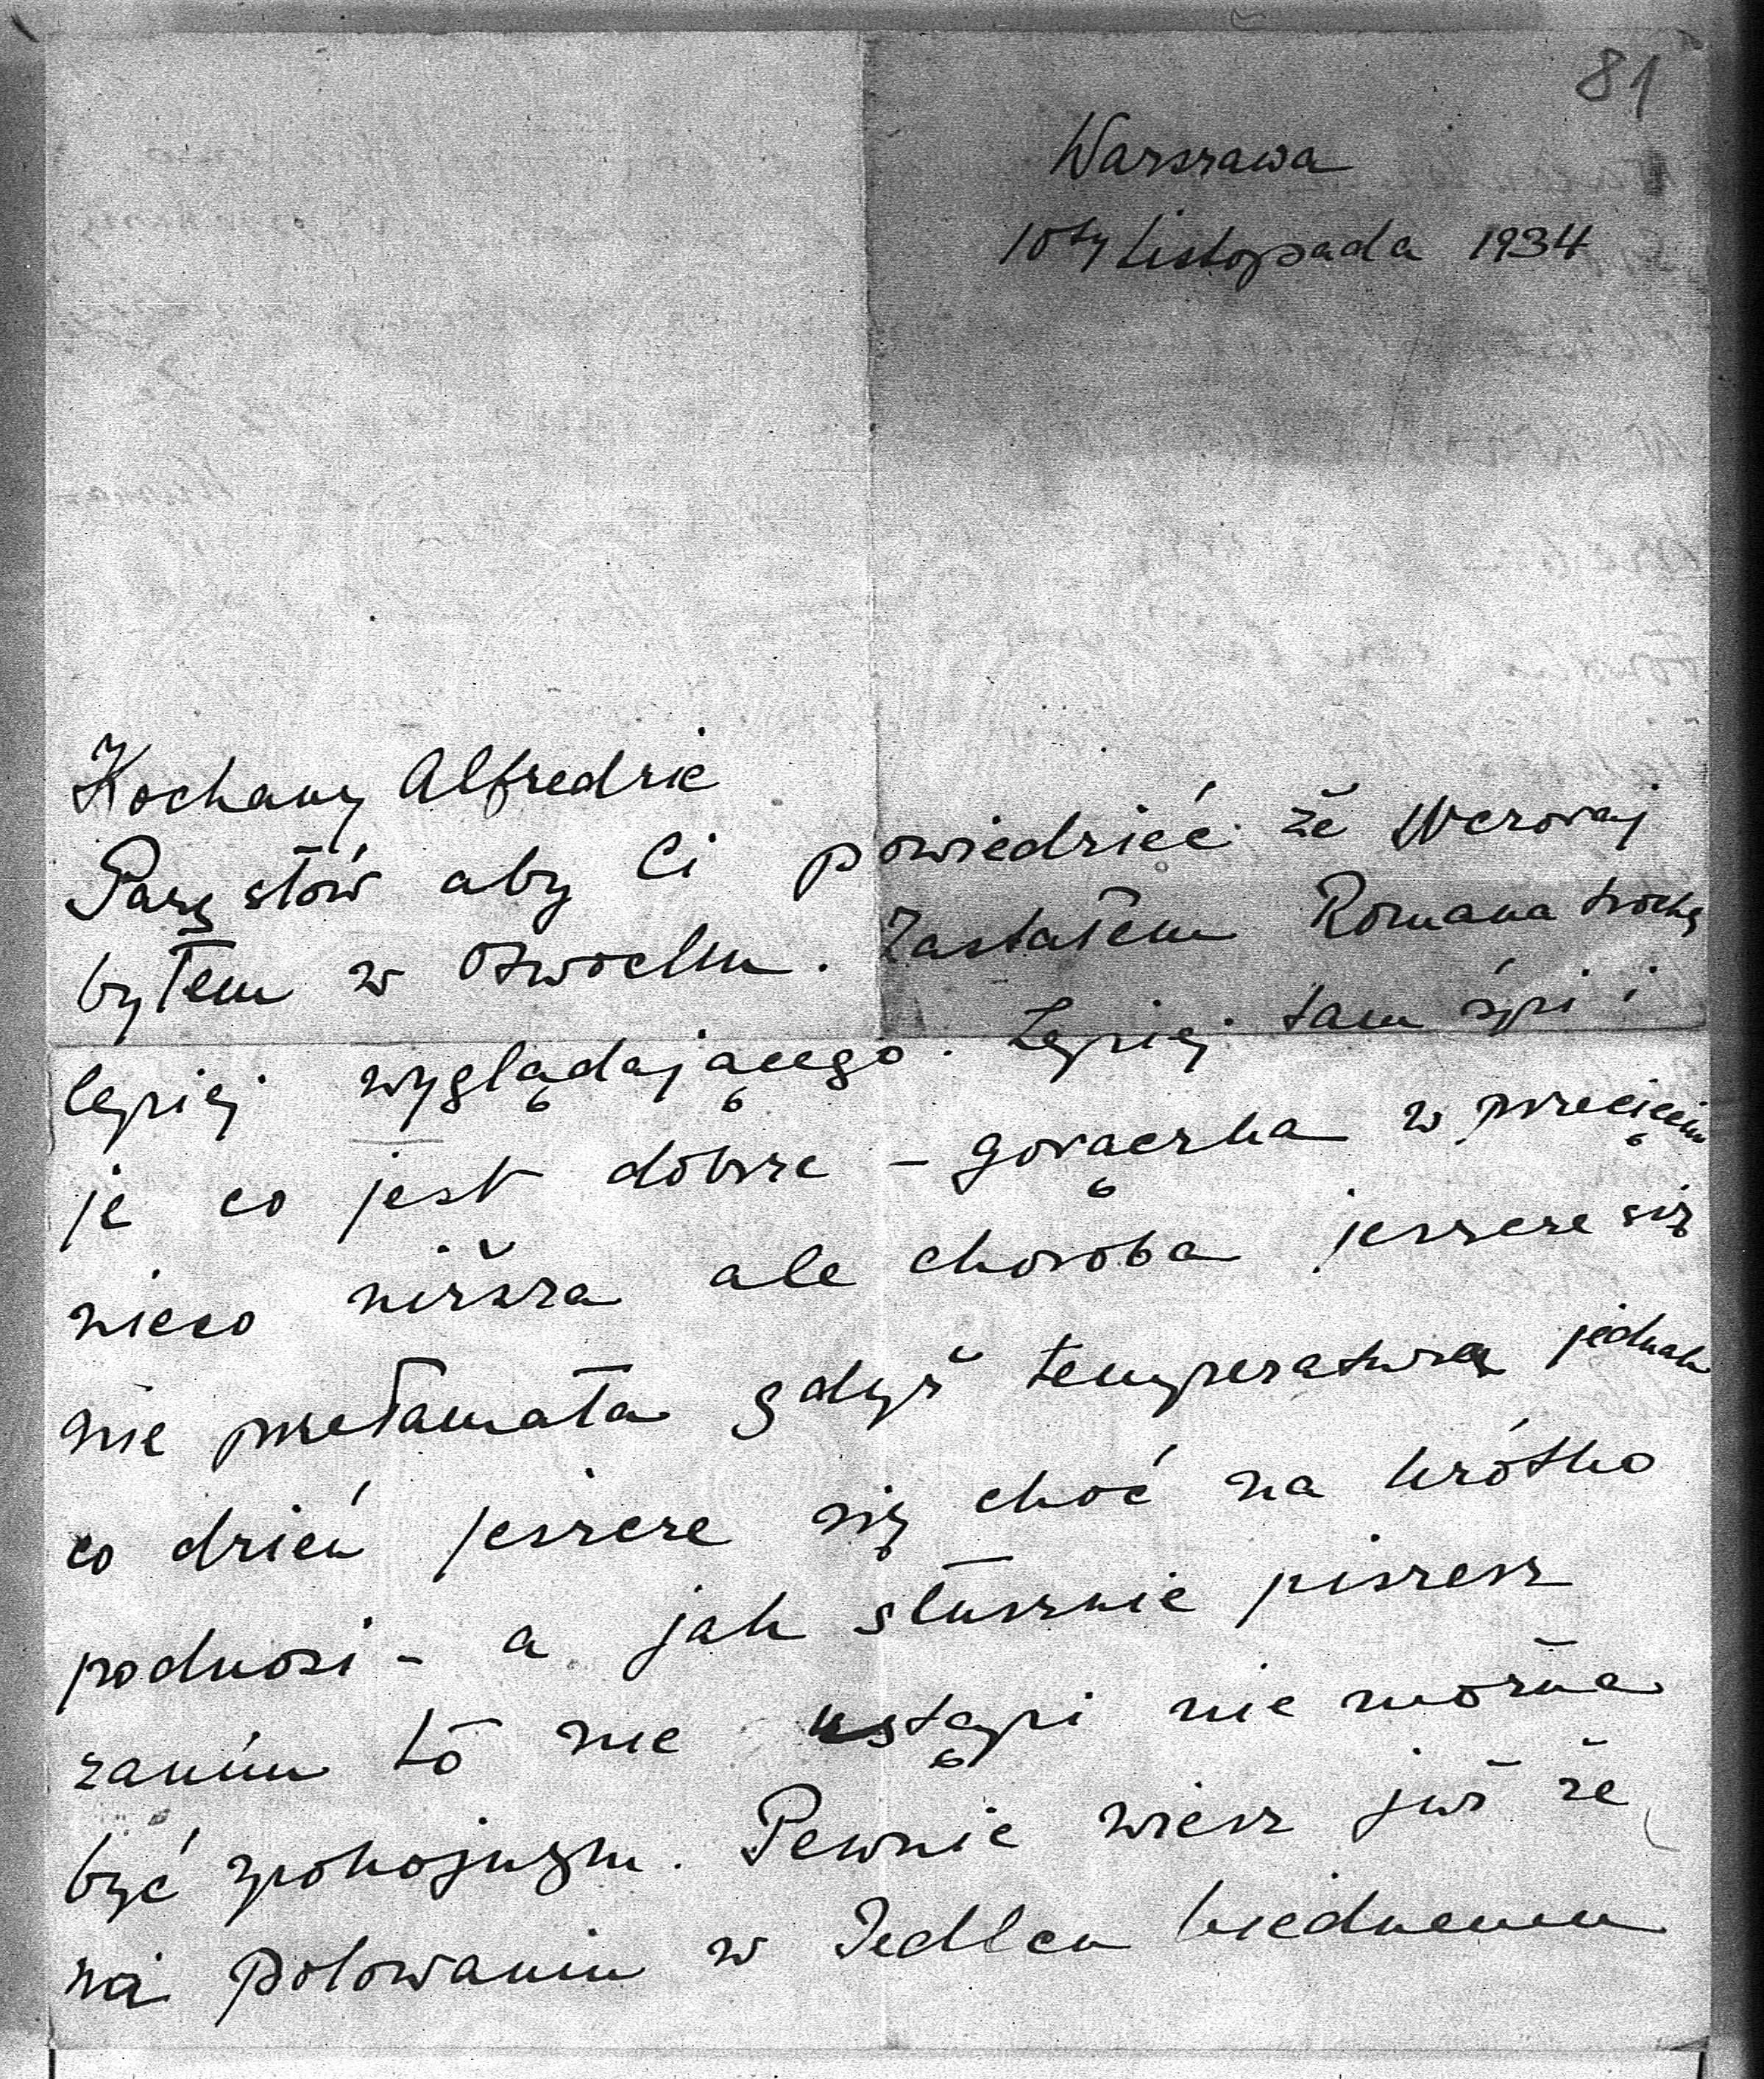 81
Warszawa
10ty Listopada 1934
Kochany Alfredzie
Parę słów aby Ci powiedzieć że wczoraj
byłem w Otwocku. Zastałem Romana trochę
lepiej wyglądającego. Lepiej tam śpi i
je co jest dobrze – gorączka w przecięciu
nieco niższa ale choroba jeszcze się
nie przełamała gdyż temperatura jednak
co dzień jeszcze się choć na krótko
podnosi – a jak słusznie piszesz
zanim to nie ustąpi nie można
być spokojnym. Pewnie wiesz już że
na polowaniu w biednemu